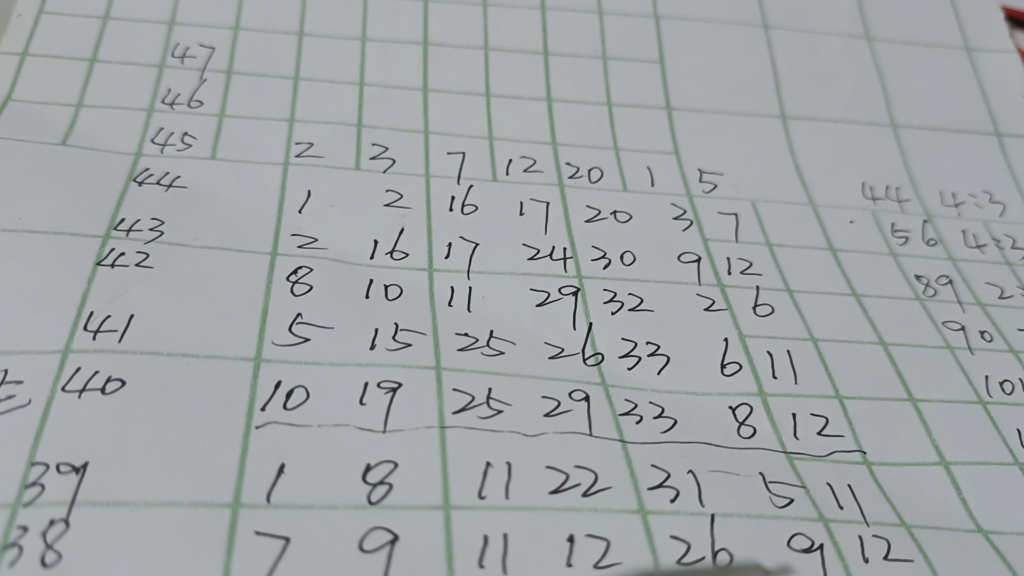 47
46
45 2 3 7 12 20 1 5
44 1 2 16 17 20 3 7 44 4:3
43 2 16 17 24 30 9 12 56
42 8 10 11 29 32 2 6 89
41 5 15 25 26 33 6 11 90
40 10 19 25 29 33 8 12
39 1 8 11 22 31 5 11
38 7 9 11 12 26 9 12